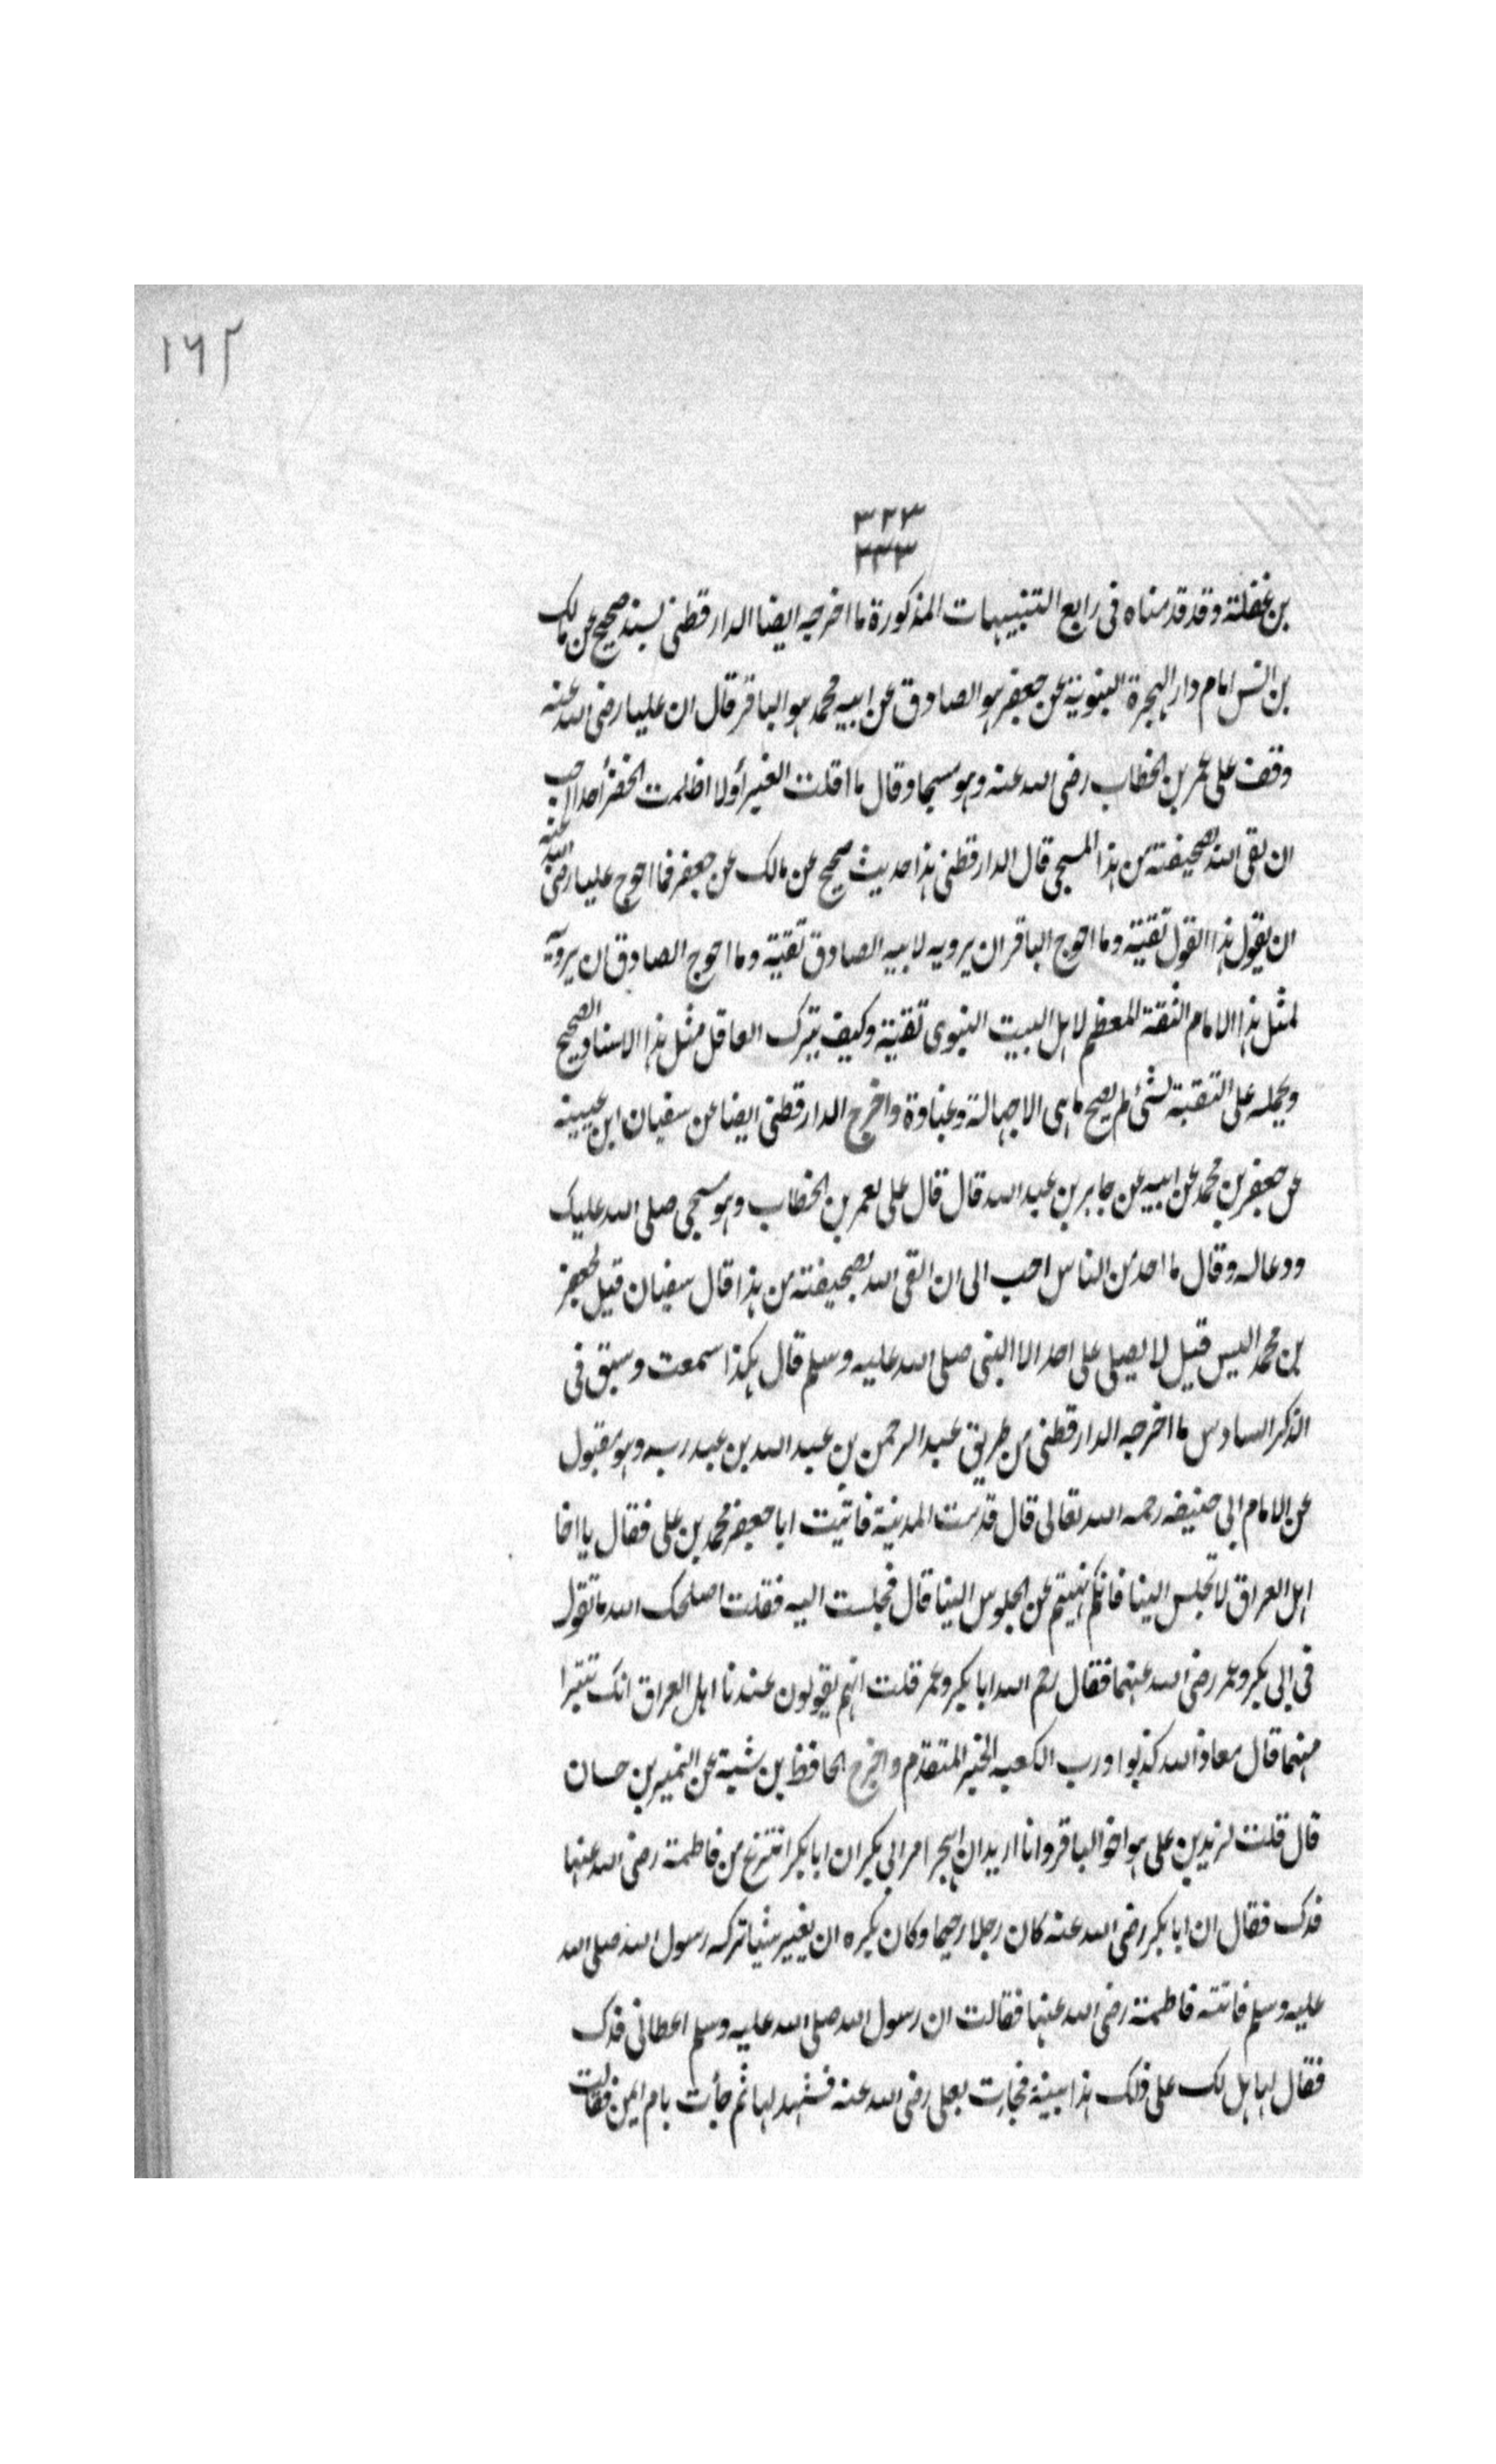 ١٦٢
٣٢٣
٣٣٣
بن غفلة وقد قدمناه فى رابع التنبيهات المذكورة ما اخرجه ايضا الدارقطنى بسند صحيح عن مالك
بن انس امام دار الهجرة النبوية عن جعفر هو الصادق عن ابيه محمد هو الباقر قال ان عليا رضى الله عنه
وقف على عمر بن الخطاب رضى الله عنه وهو مسجا وقال ما اقلت الغبرا ولا اظلمت الخضرأ احدا احب
ان القى الله بصحيفته من هذا المسجى قال الدارقطنى هذا حديث صحيح عن مالك عن جعفر فما احوج عليا رضى الله عنه
ان يقول هذا القول تقية وما احوج الباقر ان يرويه لابيه الصادق تقية وما احوج الصادق ان يرويه
لمثل هذا الامام الثقة المعظم لاهل البيت النبوى تقية وكيف يترك العاقل مثل هذا الاسناد الصحيح
ويحمله على التقية لشئ لم يصح ما هى الا جهالة وغباوة واخرج الدارقطنى ايضا عن سفيان ابن عيينه
عن جعفر بن محمد عن ابيه عن جابر بن عبد الله قال قال على لعمر بن الخطاب وهو مسجى صلى الله عليك
ودعا له وقال ما احد من الناس احب الى ان القى الله بصحيفته من هذا قال سفيان قيل لجعفر
بن محمد اليس قيل لا يصلى على احد الا النبى صلى الله عليه وسلم قال هكذا سمعت وسبق فى
الذكر السادس ما اخرجه الدارقطنى من طريق عبد الرحمن بن عبد الله بن عبد ربه وهو مقبول
عن الامام ابى حنيفه رحمه الله تعالى قال قدمت المدينة فاتيت ابا جعفر محمد بن على فقال يا اخا
اهل العراق لا تجلس الينا فانكم نهيتم عن الجلوس الينا قال فجلست اليه فقلت اصلحك الله ما تقول
فى ابى بكر وعمر رضى الله عنهما فقال رحم الله ابا بكر وعمر قلت انهم يقولون عندنا اهل العراق انك تتبرا
منهما قال معاذ الله كذبوا ورب الكعبه الخبر المتقدم واخرج الحافظ بن شبة عن النمير بن حسان
قال قلت لزيد بن على هو اخو الباقر وانا اريد ان اهجر امر ابى بكر ان ابا بكر انتزع من فاطمة رضى الله عنها
فدك فقال ان ابا بكر رضى الله عنه كان رجلا رحيما وكان يكره ان يغير شيا تركه رسول الله صلى الله
عليه وسلم فاتته فاطمة رضى الله عنها فقالت ان رسول الله صلى الله عليه وسلم اعطانى فدك
فقال لها هل لك على ذلك هذا بينة فجاءت بعلى رضى الله عنه فشهد لها ثم جأت بام ايمن فقالت